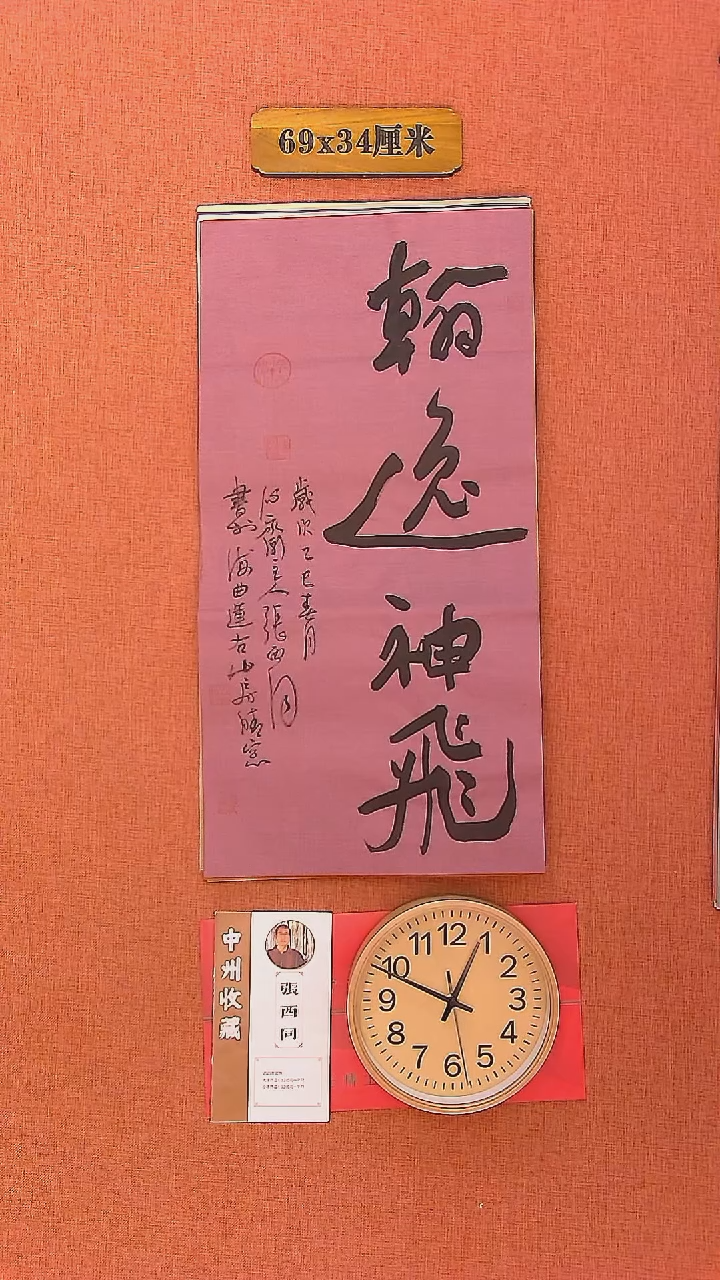 69x34厘米
翰逸神飞
歲次乙巳春月
主人張西同
書於海曲蓮右山房晴窓
中州收藏
張西同
12
1
2
3
4
5
6
7
8
9
10
11